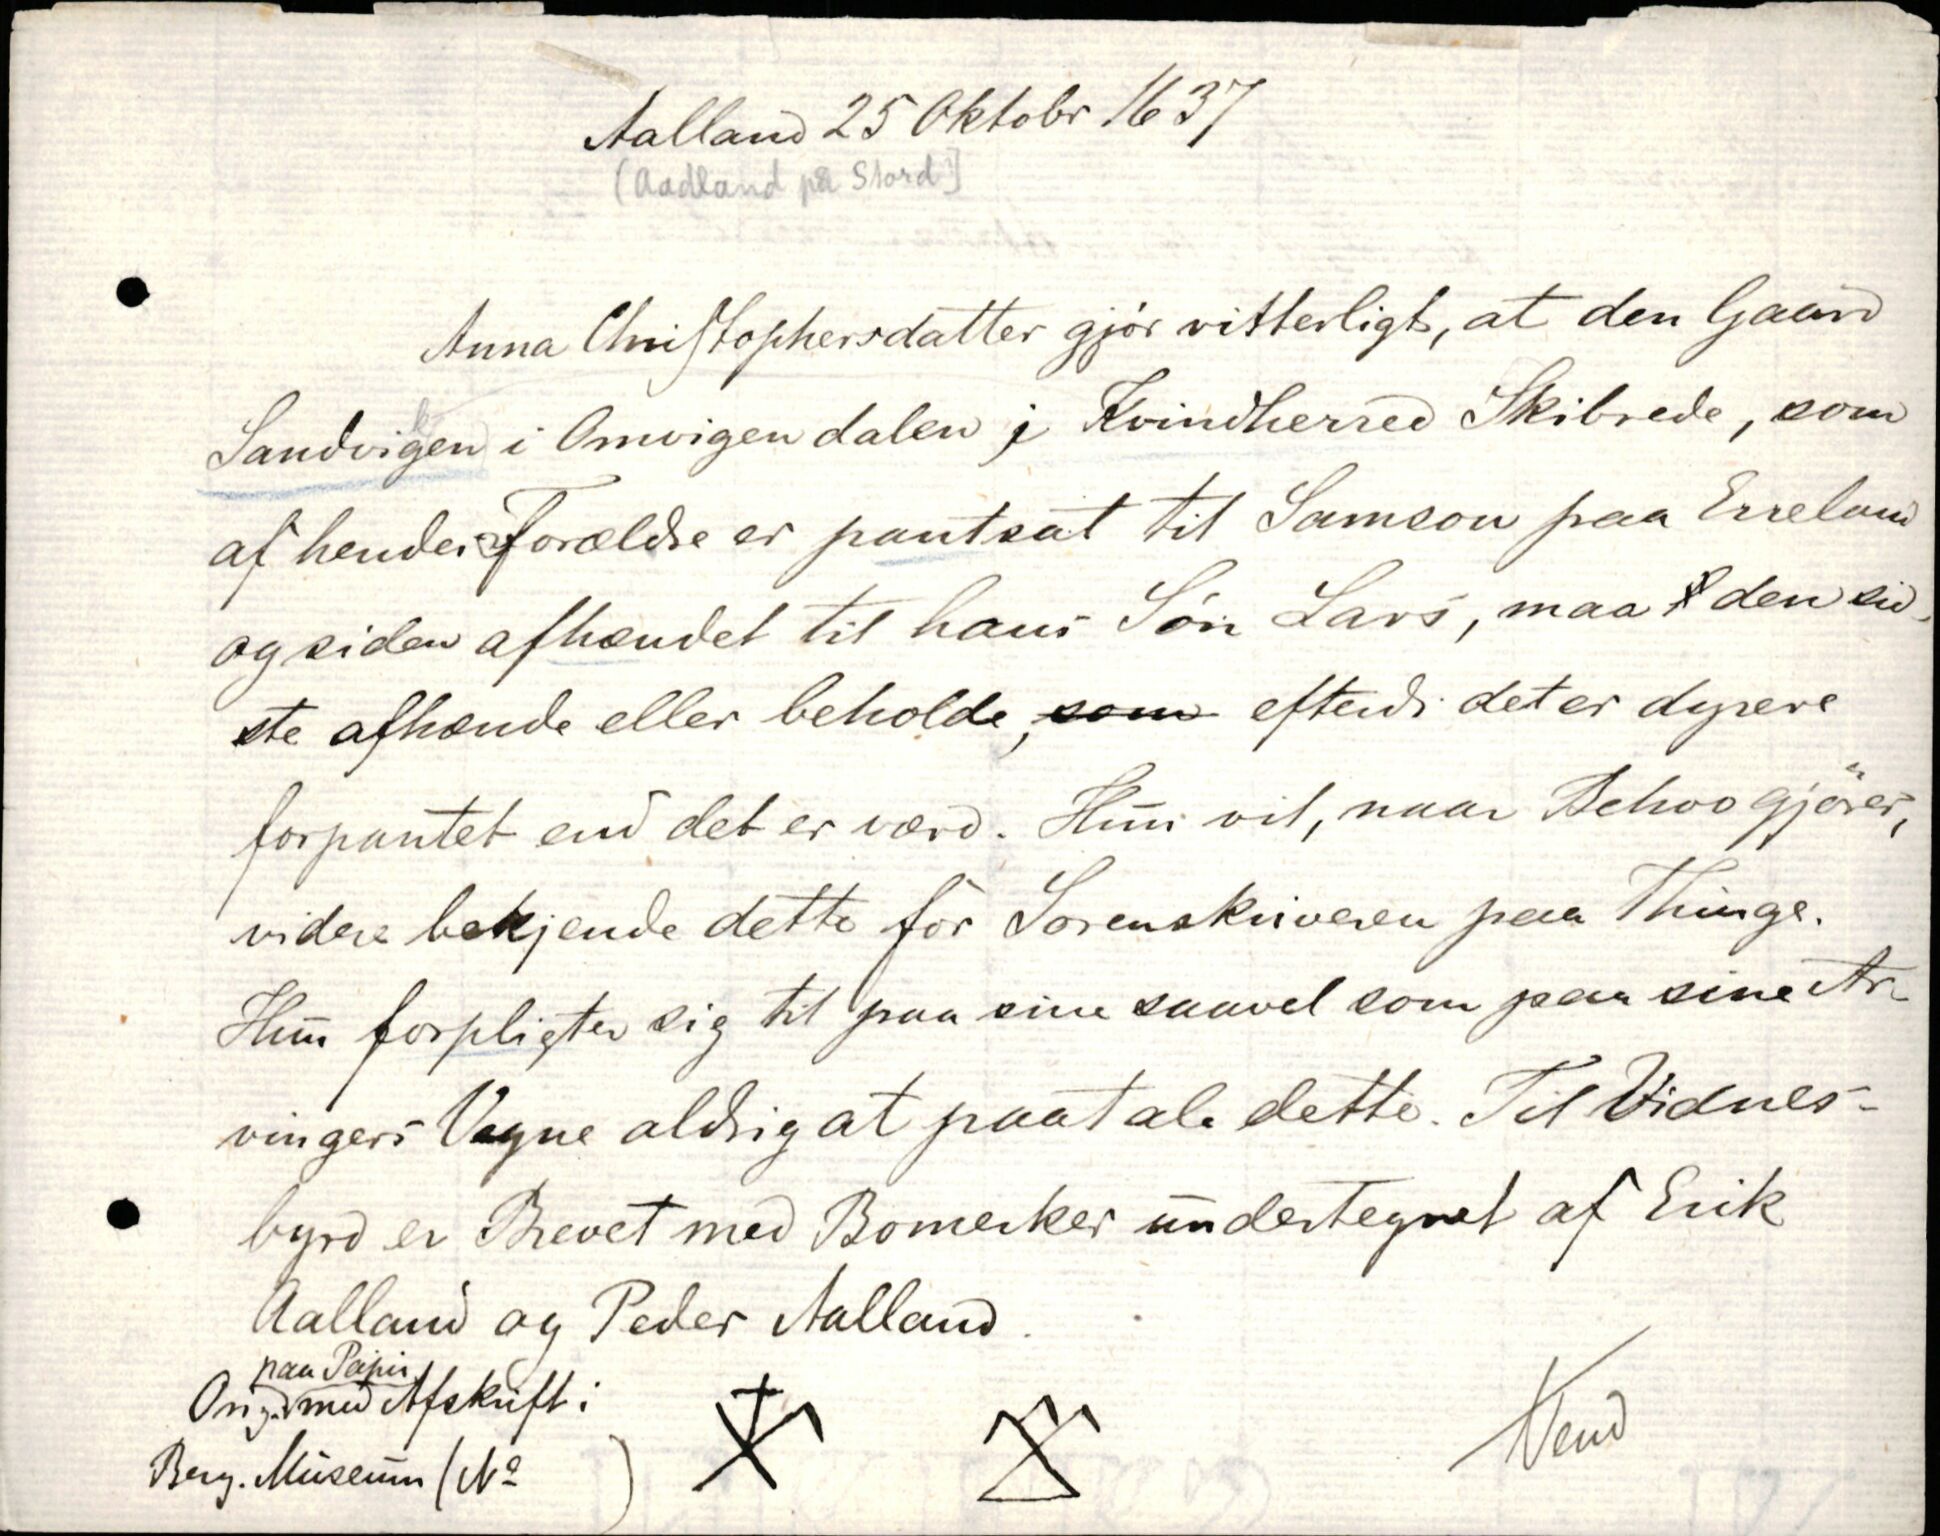 Aalland 25 Oktobr 1637
(Aadland på Stord]
Anna Christophersdatter gjør vitterligt, at den Gaard
Sandvigen i Omvigendalen j Kvindherred Skibrede, som
af hendes Forældre er pantsat til Samson paa Erreland
og siden afhændet til hans Søn Lars, maa den sid-
ste afhænde eller beholde, som efterdi det er dyrere
forpantet end det er værd. Hun vil, naar Behov gjøres,
videre bekjende dette for Sorenskriveren paa Thinge.
Hun forpligter sig til paa sine saavel som paa sine Ar-
vingers Vegne aldrig at paatale dette. Til Vidnes-
byrd er Brevet med Bomerker undertegnet af Erik
Aalland og Peder Aalland.
paa Papir
Orig. med Afskrift i
Berg. Museum (No )
Vend